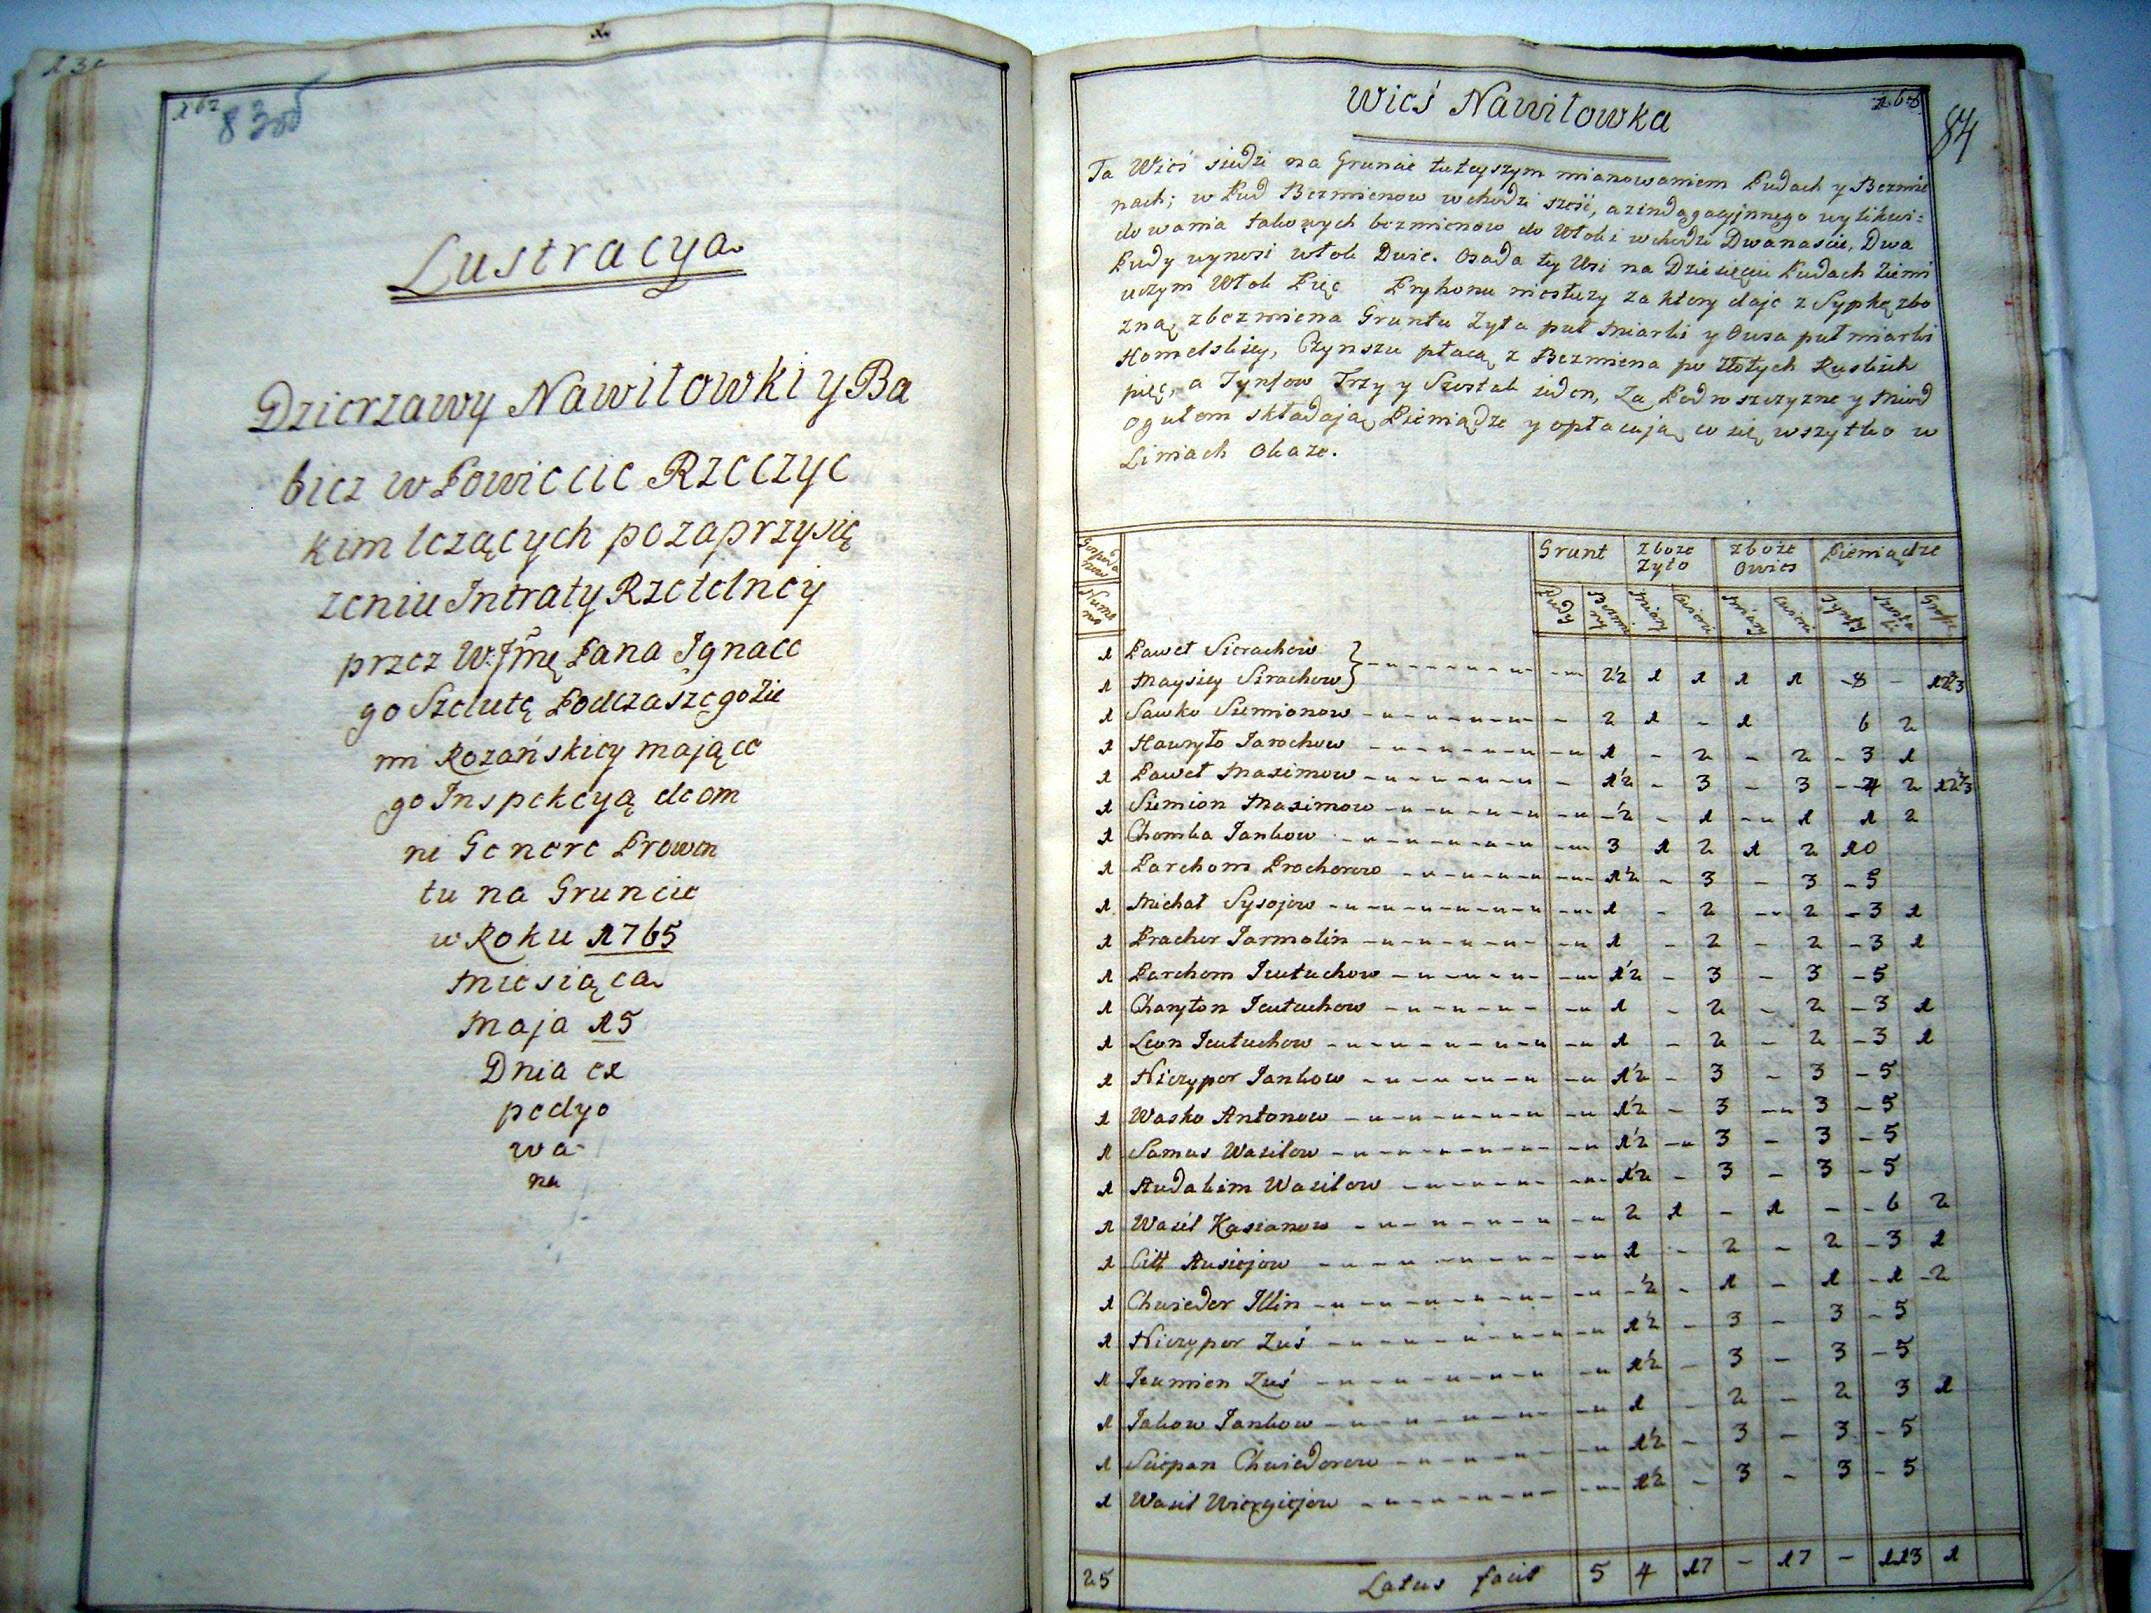 162
83об
Lustracya
Dzierzawy Nawiłowki y Ba
bicz w Powiecie Rzeczyc
kim leząсych po zaprzysię
zeniu Intraty Rzetelney
przez W: Jmę Pana Ignace
go Szelutę Podczaszego Zie
mi Rozańskiey mające
go Inspekcyą de om
ni Genere Prowen
tu na Gruncie
w Roku 1765
Miesiąca
Maja 15
Dnia ex
pedyo
wa
na
Wieś Nawiłowka
84
Ta Wieś siedzi na Gruncie tuteyszym mianowaniem Pudach y Bezmie
nach; w Pud Bezmienow wchodzi sześć, a zindagacyinnego wylikwi=
dowania takowych bezmienow do Włoki wchodzi Dwanaście, Dwa
Pudy wynosi włok Dwie. Osada tey Wsi na Dziesięciu Pudach Ziemi
uczym Włok Pięć Pryhonu niesłuzy za ktory daje z Sypką zbo
zną z bezmiena Gruntu Zyta puł Miarki y Owsa puł miarki
Homelskiey, Czynszu płacą z Bezmiena po Złotych Ruskich
pięć, a Tynfow Trzy y Szostak ieden, Za Podwoszczyzne y Miod
ogułem składają Pieniądze y opłacają co się wszytko w
Liniach Okaze.
Grunt Zboze Zyto Zboże Owies Pieniądze
Pudy Bezmieny Miary Miary Tynfy Szostaki Grosze
1 Paweł Sierachow
1 Maysiey Sirachow 2½ 1 1 1 1 8 – 12⅔
1 Sawko Siemionow 2 1 – 1 6 2
1 Hawryło Jarochow 1 – 2 – 2 – 3 1
1 Paweł Maximow 1½ – 3 – 3 – 4 2
1 Siemion Maximow ½ – 1 – 1 1 2
1 Chomka Jankow 3 1 2 1 2 10
1 Parchom Prochorow 1½ – 3 – 3 – 5
1 Michał Sysojow 1 – 2 – 2 – 3 1
1 Prachor Jarmolin 1 – 2 – 2 – 3 1
1 Parchom Jewtuchow 1½ – 3 – 3 – 5
1 Charyton Jewtuchow 1 – 2 – 2 – 3 1
1 Leon Jewtuchow 1 – 2 – 2 – 3 1
1 Niczypor Jankow 1½ – 3 – 3 – 5
1 Wasko Antonow 1½ – 3 – 3 – 5
1 Samus Wasilow 1½ – 3 – 3 – 5
1 Audakim Wasilow 1½ – 3 – 3 – 5
1 Wasil Kasianow 2 1 – 1 – 6 2
1 Citt Ausiejow 1 – 2 – 2 – 3 1
1 Chwiedor Illin ½ – 1 – 1 – 1 – 2
1 Niczypor Zuś 1½ – 3 – 3 – 5
1 Jeumien Zuś 1½ – 3 – 3 – 5
1 Jakow Jankow 1 – 2 – 2 3 1
1 Sciepan Chwiedorow 1½ – 3 – 3 – 5
1 Wasil 1½ – 3 – 3 – 5
25 Latus facit 5 4 17 – 17 – 113 1